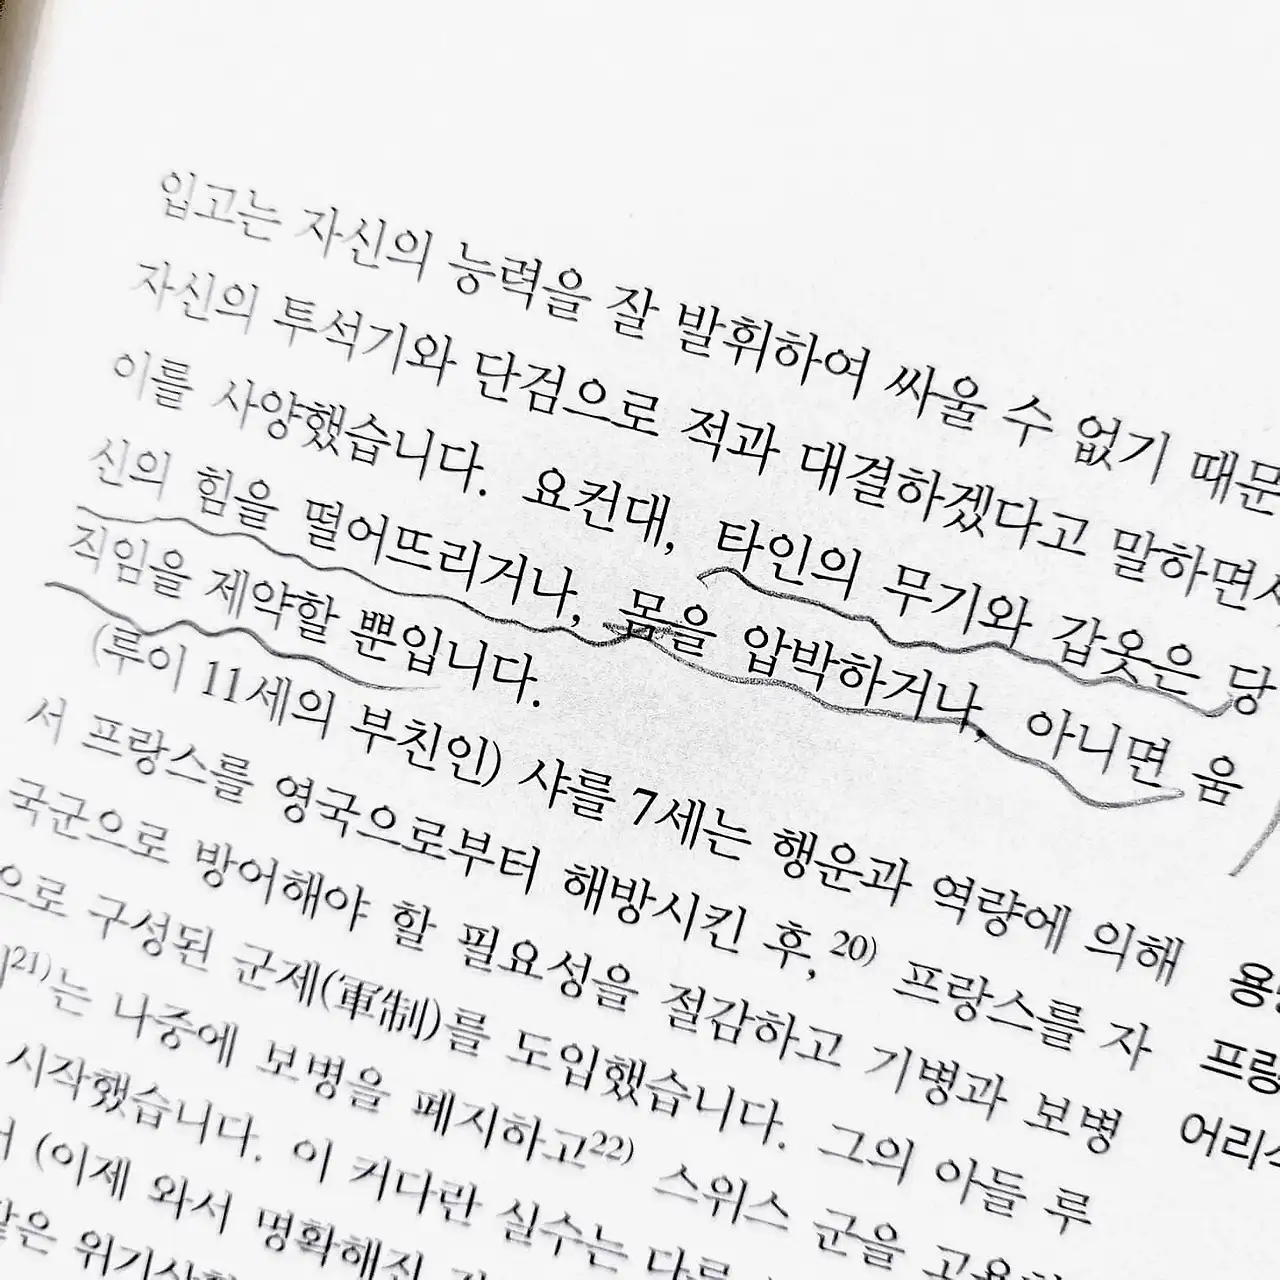 입고는 자신의 능력을 잘 발휘하여 싸울 수 없기 때문
자신의 투석기와 단검으로 적과 대결하겠다고 말하면서
이를 사양했습니다. 요컨대, 타인의 무기와 갑옷은 당
신의 힘을 떨어뜨리거나, 몸을 압박하거나, 아니면 움
직임을 제약할 뿐입니다.
(루이 11세의 부친인) 샤를 7세는 행운과 역량에 의해
서 프랑스를 영국으로부터 해방시킨 후,20) 프랑스를 자
국군으로 방어해야 할 필요성을 절감하고 기병과 보병
으로 구성된 군제(軍制)를 도입했습니다. 그의 아들 루
21)는 나중에 보병을 폐지하고22) 스위스 군을 고용하
시작했습니다. 이 커다란 실수는 다른
(이제 와서 명확해진
같은 위기상황
용
프랑
어리